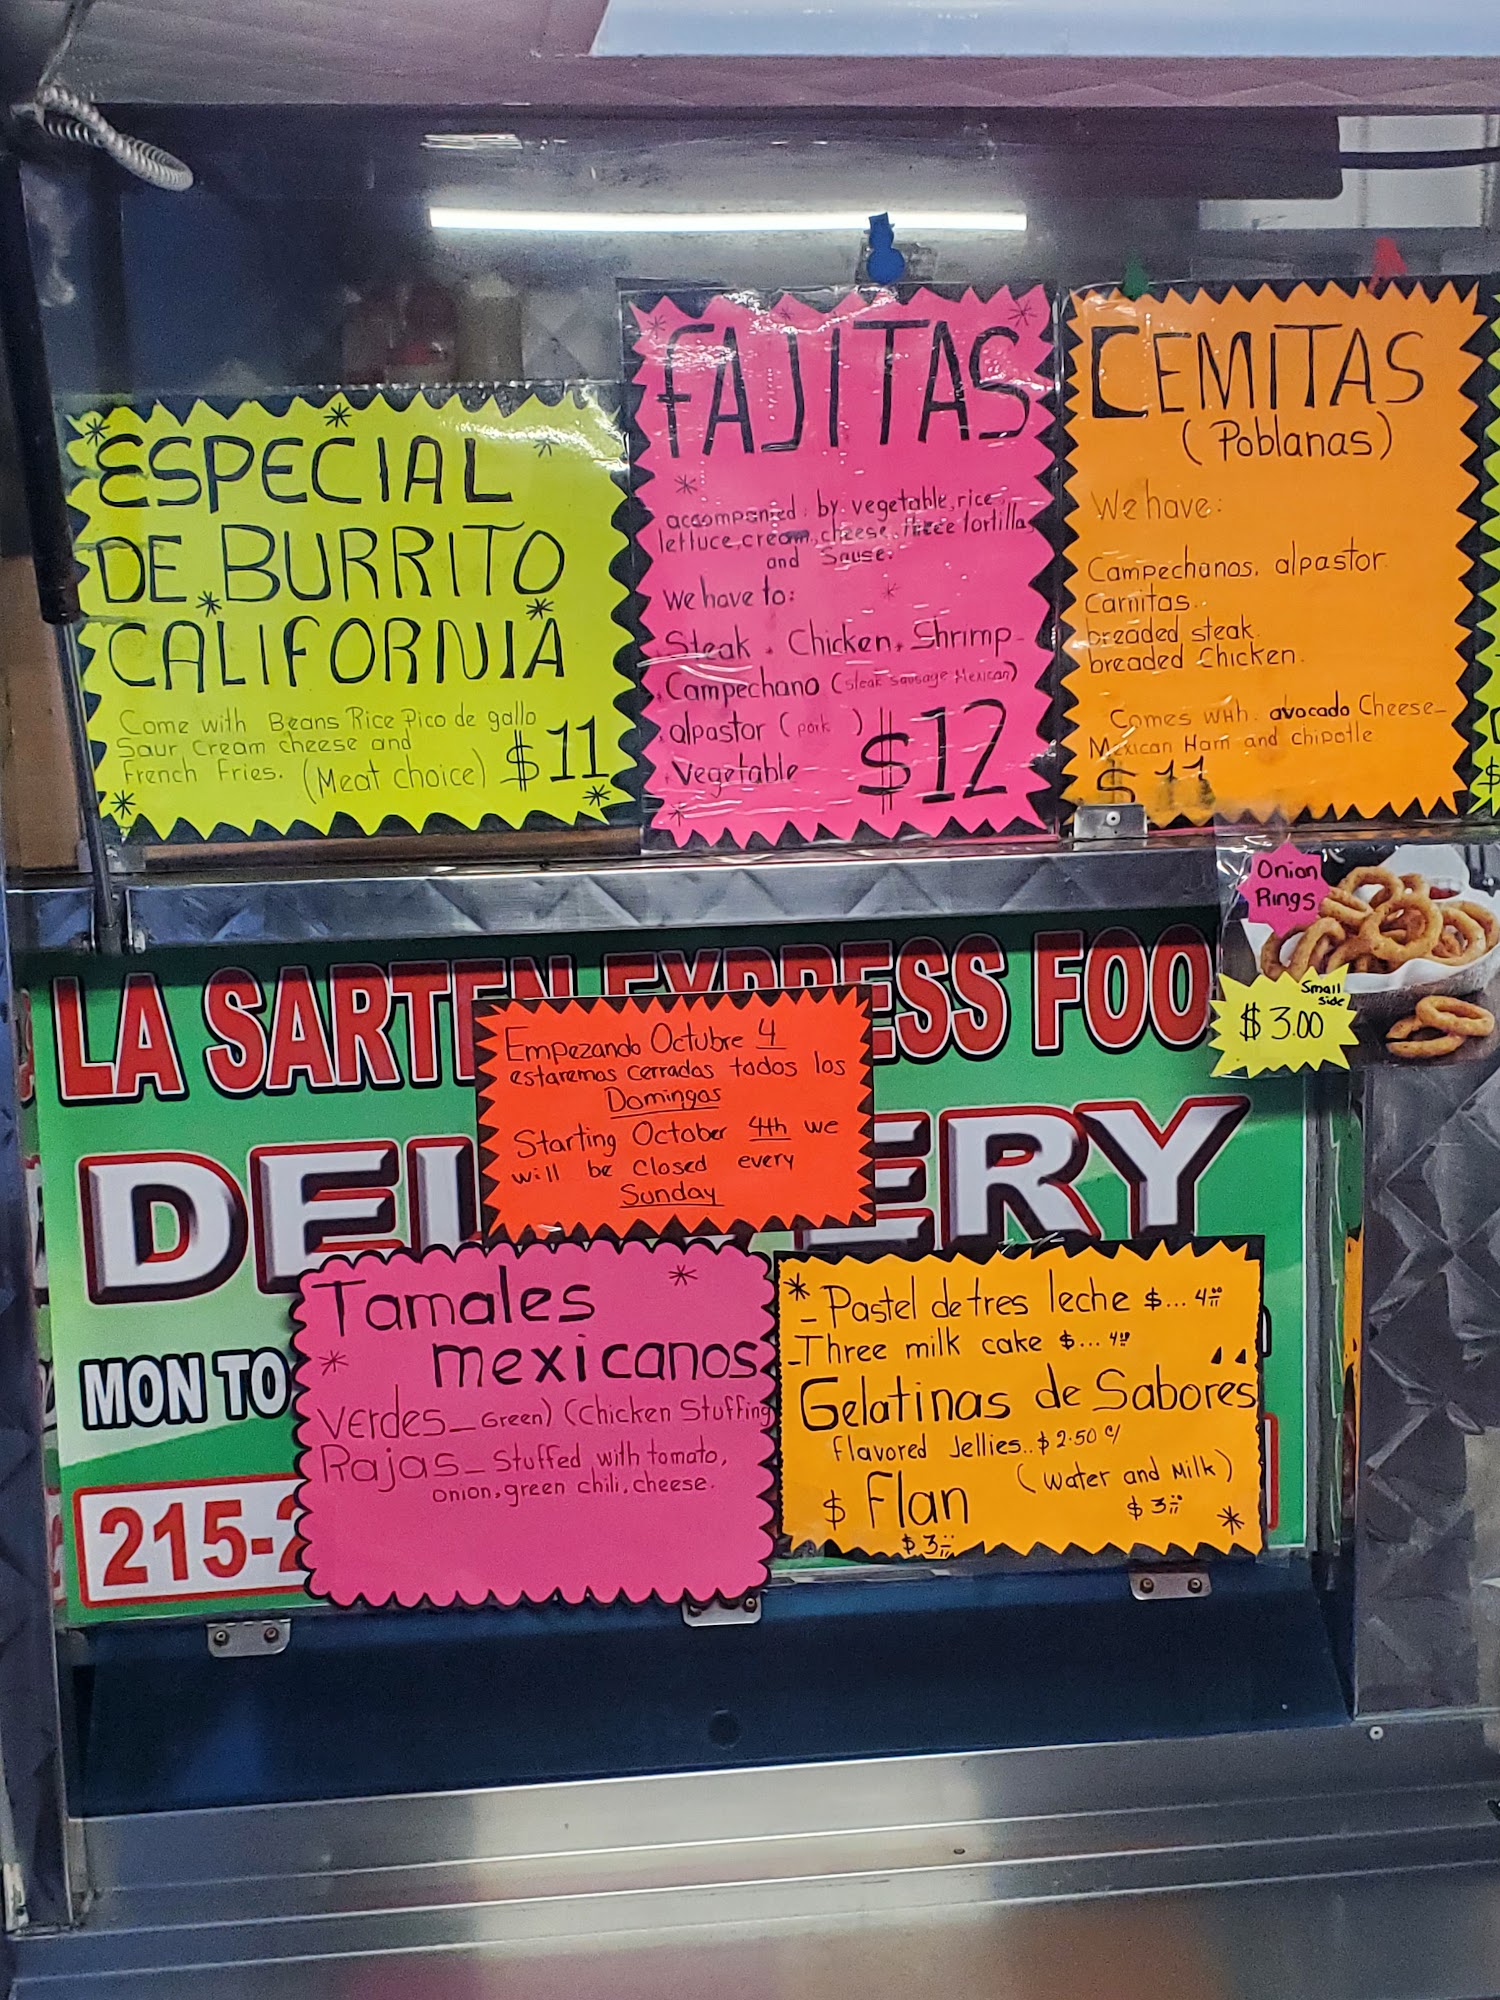 ESPECIAL
DE BURRITO
CALIFORNIA
Come with Beans Rice Pico de gallo
Saur Cream cheese and
French Fries. (Meat choice) $11
FAJITAS
accompanied by vegetable, rice,
lettuce, cream, cheese, three tortillas
and Sause.
We have to:
Steak. Chicken. Shrimp-
Campechano (steak sausage Mexican)
alpastor (pork )
Vegetable
$12
CEMITAS
(Poblanas)
We have:
Campechanos, alpastor
Carnitas.
breaded steak.
breaded Chicken.
Comes with avocado Cheese-
Mexican Ham and chipotle
$11
Onion
Rings
Small
side
$3.00
LA SARTEN EXPRESS FOO
Empezando Octubre 4
estaremos cerrados todos los
Domingos
Starting October 4th we
will be closed every
Sunday
DEL ERY
MON TO
215-2
Tamales
mexicanos
Verdes_Green) (Chicken Stuffing
Rajas_Stuffed with tomato,
onion, green chili, cheese.
- Pastel de tres leche $... 4.00
-Three milk cake $...
Gelatinas de Sabores
flavored Jellies.. $2.50 c/
(Water and Milk)
$ Flan
$3.00
$3.00